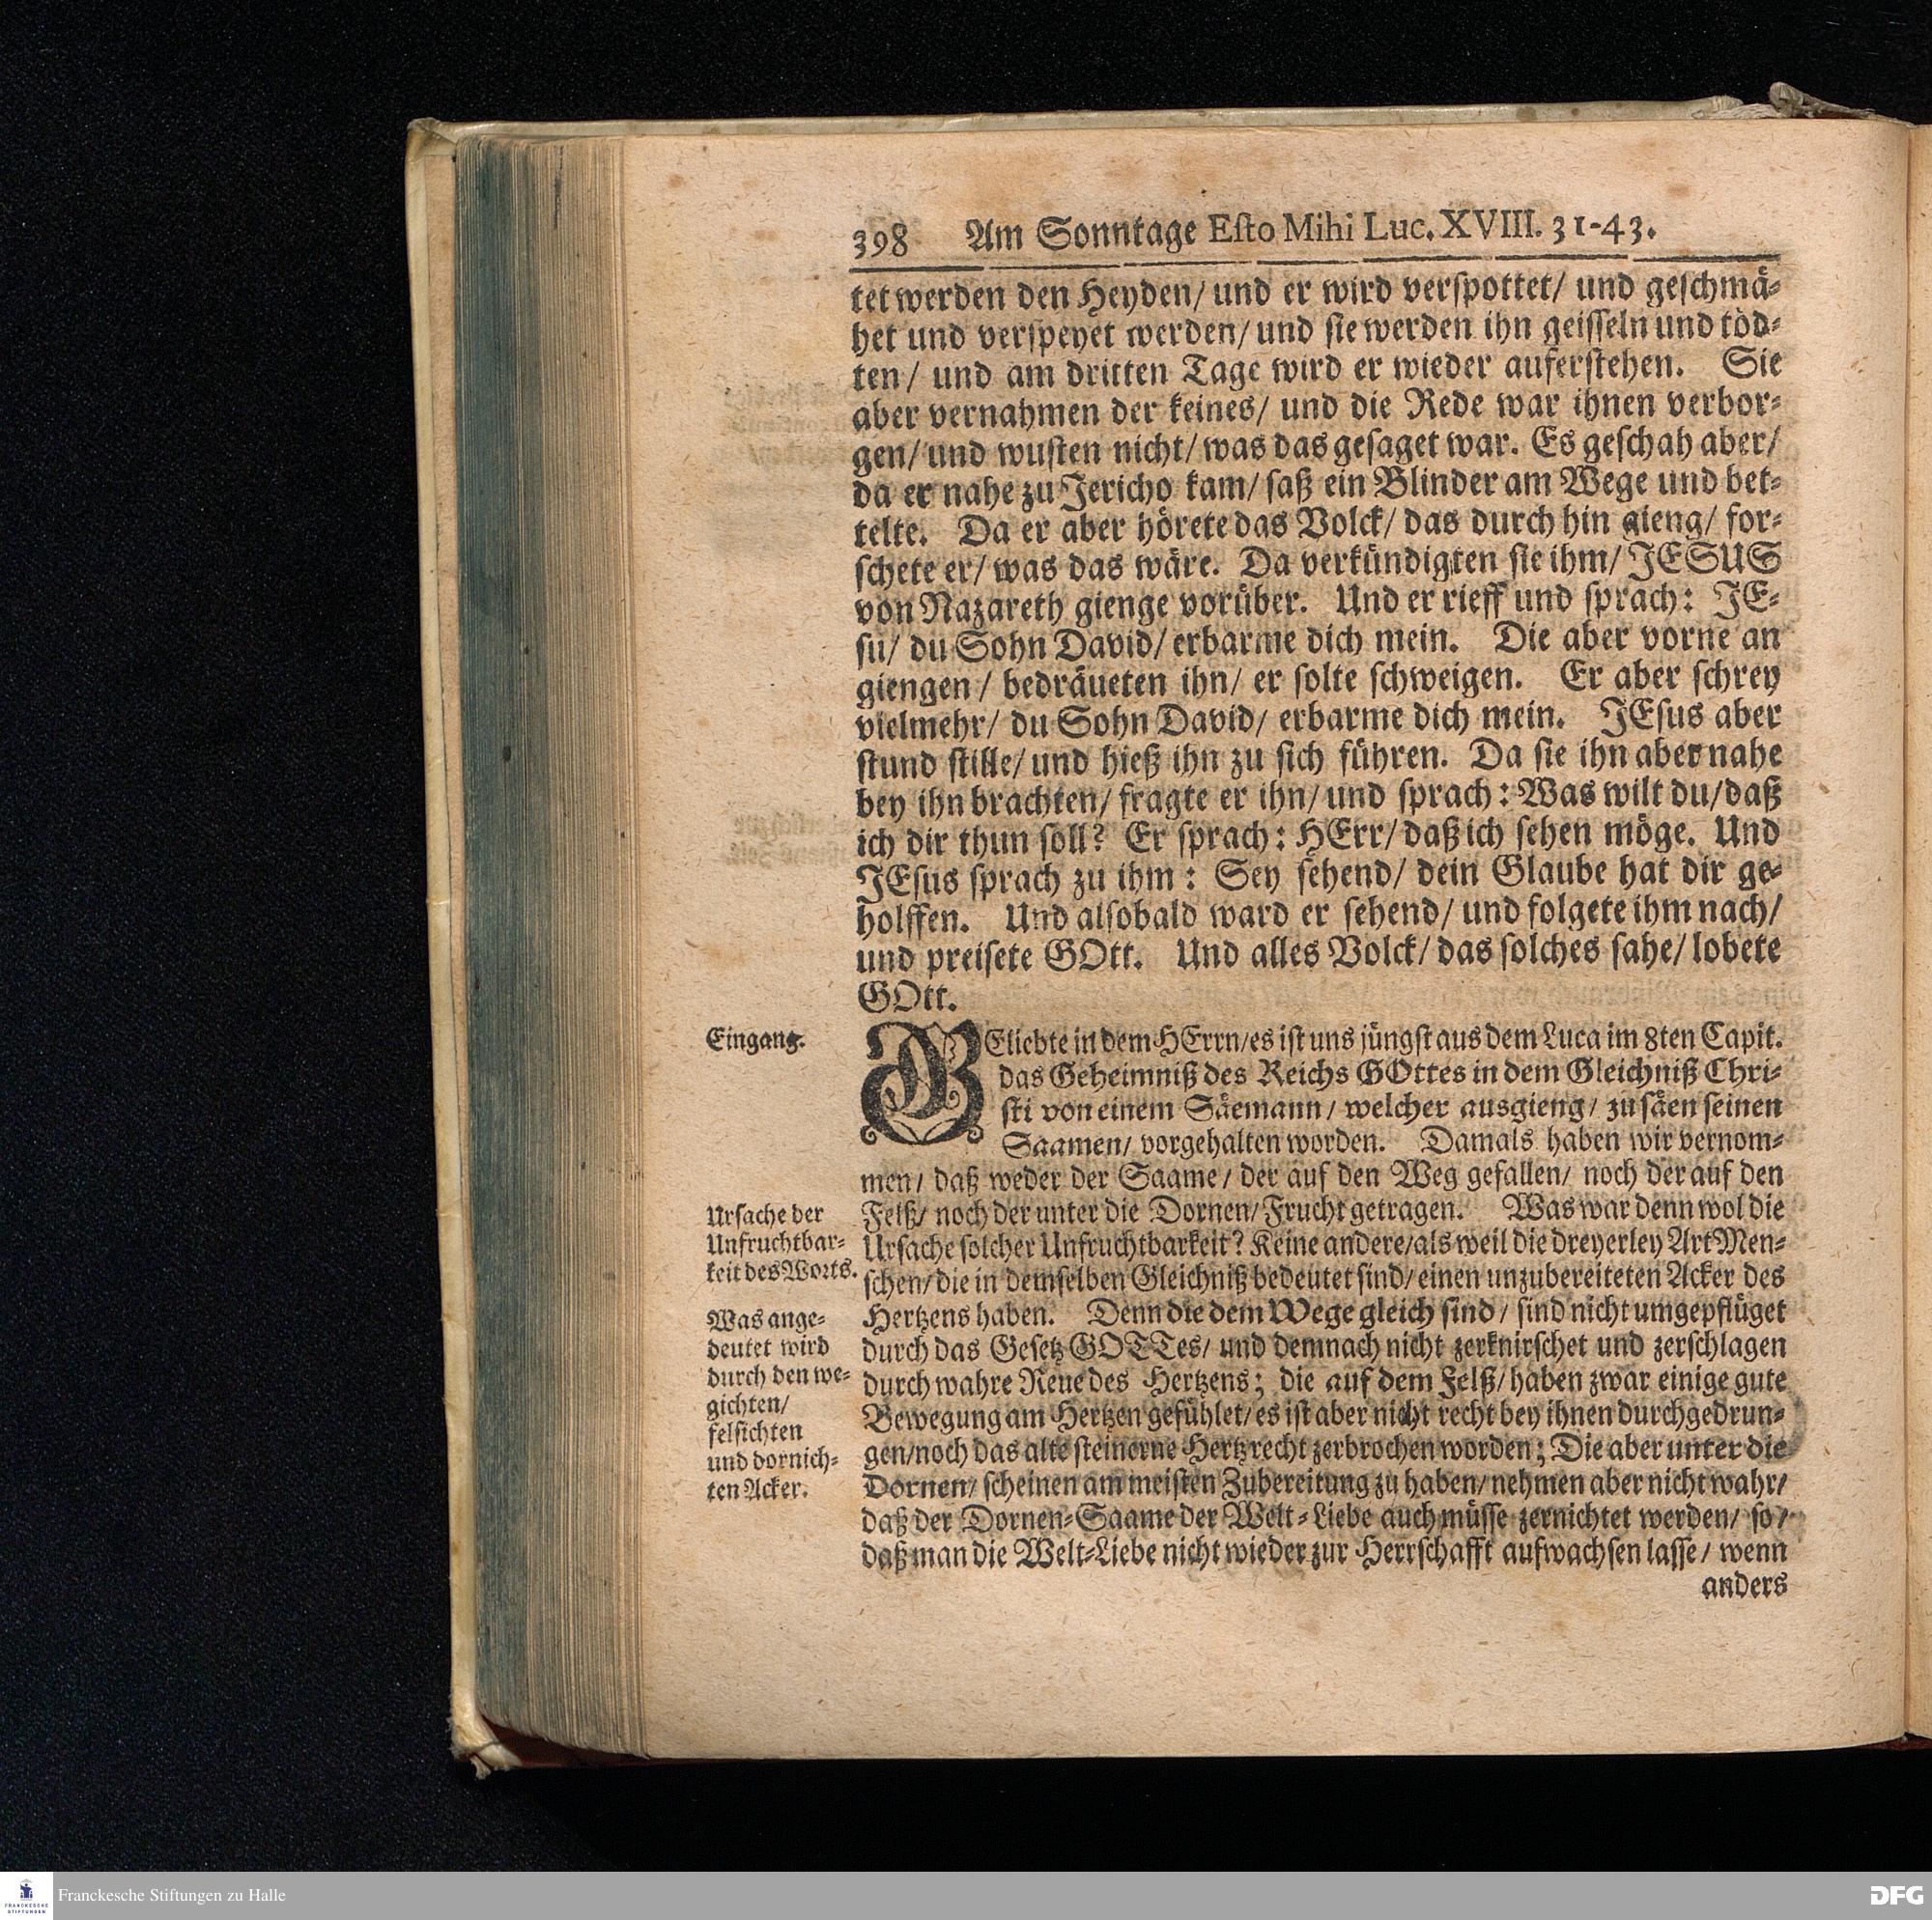 398 Am Sonntage Eſto Mihi Luc. XVIII. 31-43.
tet werden den Heyden/ und er wird verſpottet/ und geſchmä-
het und verſpeyet werden/ und ſie werden ihn geiſſeln und töd-
ten/ und am dritten Tage wird er wieder auferſtehen. Sie
aber vernahmen der keines/ und die Rede war ihnen verbor-
gen/ und wuſten nicht/ was das geſaget war. Es geſchah aber/
da er nahe zu Jericho kam/ ſaß ein Blinder am Wege und bet-
telte. Da er aber hörete das Volck/ das durch hin gieng/ for-
ſchete er/ was das wäre. Da verkündigten ſie ihm/ JESUS
von Nazareth gienge vorüber. Und er rieff und ſprach: JE-
ſu/ du Sohn David/ erbarme dich mein. Die aber vorne an
giengen/ bedräueten ihn/ er ſolte ſchweigen. Er aber ſchrey
vielmehr/ du Sohn David/ erbarme dich mein. JEſus aber
ſtund ſtille/ und hieß ihn zu ſich führen. Da ſie ihn aber nahe
bey ihn brachten/ fragte er ihn/ und ſprach: Was wilt du/ daß
ich dir thun ſoll? Er ſprach: HErr/ daß ich ſehen möge. Und
JEſus ſprach zu ihm: Sey ſehend/ dein Glaube hat dir ge-
holffen. Und alſobald ward er ſehend/ und folgete ihm nach/
und preiſete GOtt. Und alles Volck/ das ſolches ſahe/ lobete
GOtt.
Eingang.
GEliebte in dem HErrn/ es iſt uns jüngſt aus dem Luca im 8ten Capit.
das Geheimniß des Reichs GOttes in dem Gleichniß Chri-
ſti von einem Säemann/ welcher ausgieng/ zu ſäen ſeinen
Saamen/ vorgehalten worden. Damals haben wir vernom-
men/ daß weder der Saame/ der auf den Weg gefallen/ noch der auf den
Felß/ noch der unter die Dornen/ Frucht getragen. Was war denn wol die
Urſache ſolcher Unfruchtbarkeit? Keine andere/ als weil die dreyerley Art Men-
ſchen/ die in demſelben Gleichniß bedeutet ſind/ einen unzubereiteten Acker des
Hertzens haben. Denn die dem Wege gleich ſind/ ſind nicht umgepflüget
durch das Geſetz GOTTes/ und demnach nicht zerknirſchet und zerſchlagen
durch wahre Reue des Hertzens; die auf dem Felß/ haben zwar einige gute
Bewegung am Hertzen gefühlet/ es iſt aber nicht recht bey ihnen durchgedrun-
gen/ noch das alte ſteinerne Hertz recht zerbrochen worden; Die aber unter die
Dornen/ ſcheinen am meiſten Zubereitung zu haben/ nehmen aber nicht wahr/
daß der Dornen-Saame der Welt-Liebe auch müſſe zernichtet werden/ ſo/
daß man die Welt-Liebe nicht wieder zur Herrſchafft aufwachſen laſſe/ wenn
anders
Urſache der
Unfruchtbar-
keit des Worts.
Was ange-
deutet wird
durch den we-
gichten/
felſichten
und dornich-
ten Acker.
FRANCKESCHE
STIFTUNGEN
Franckesche Stiftungen zu Halle
DFG